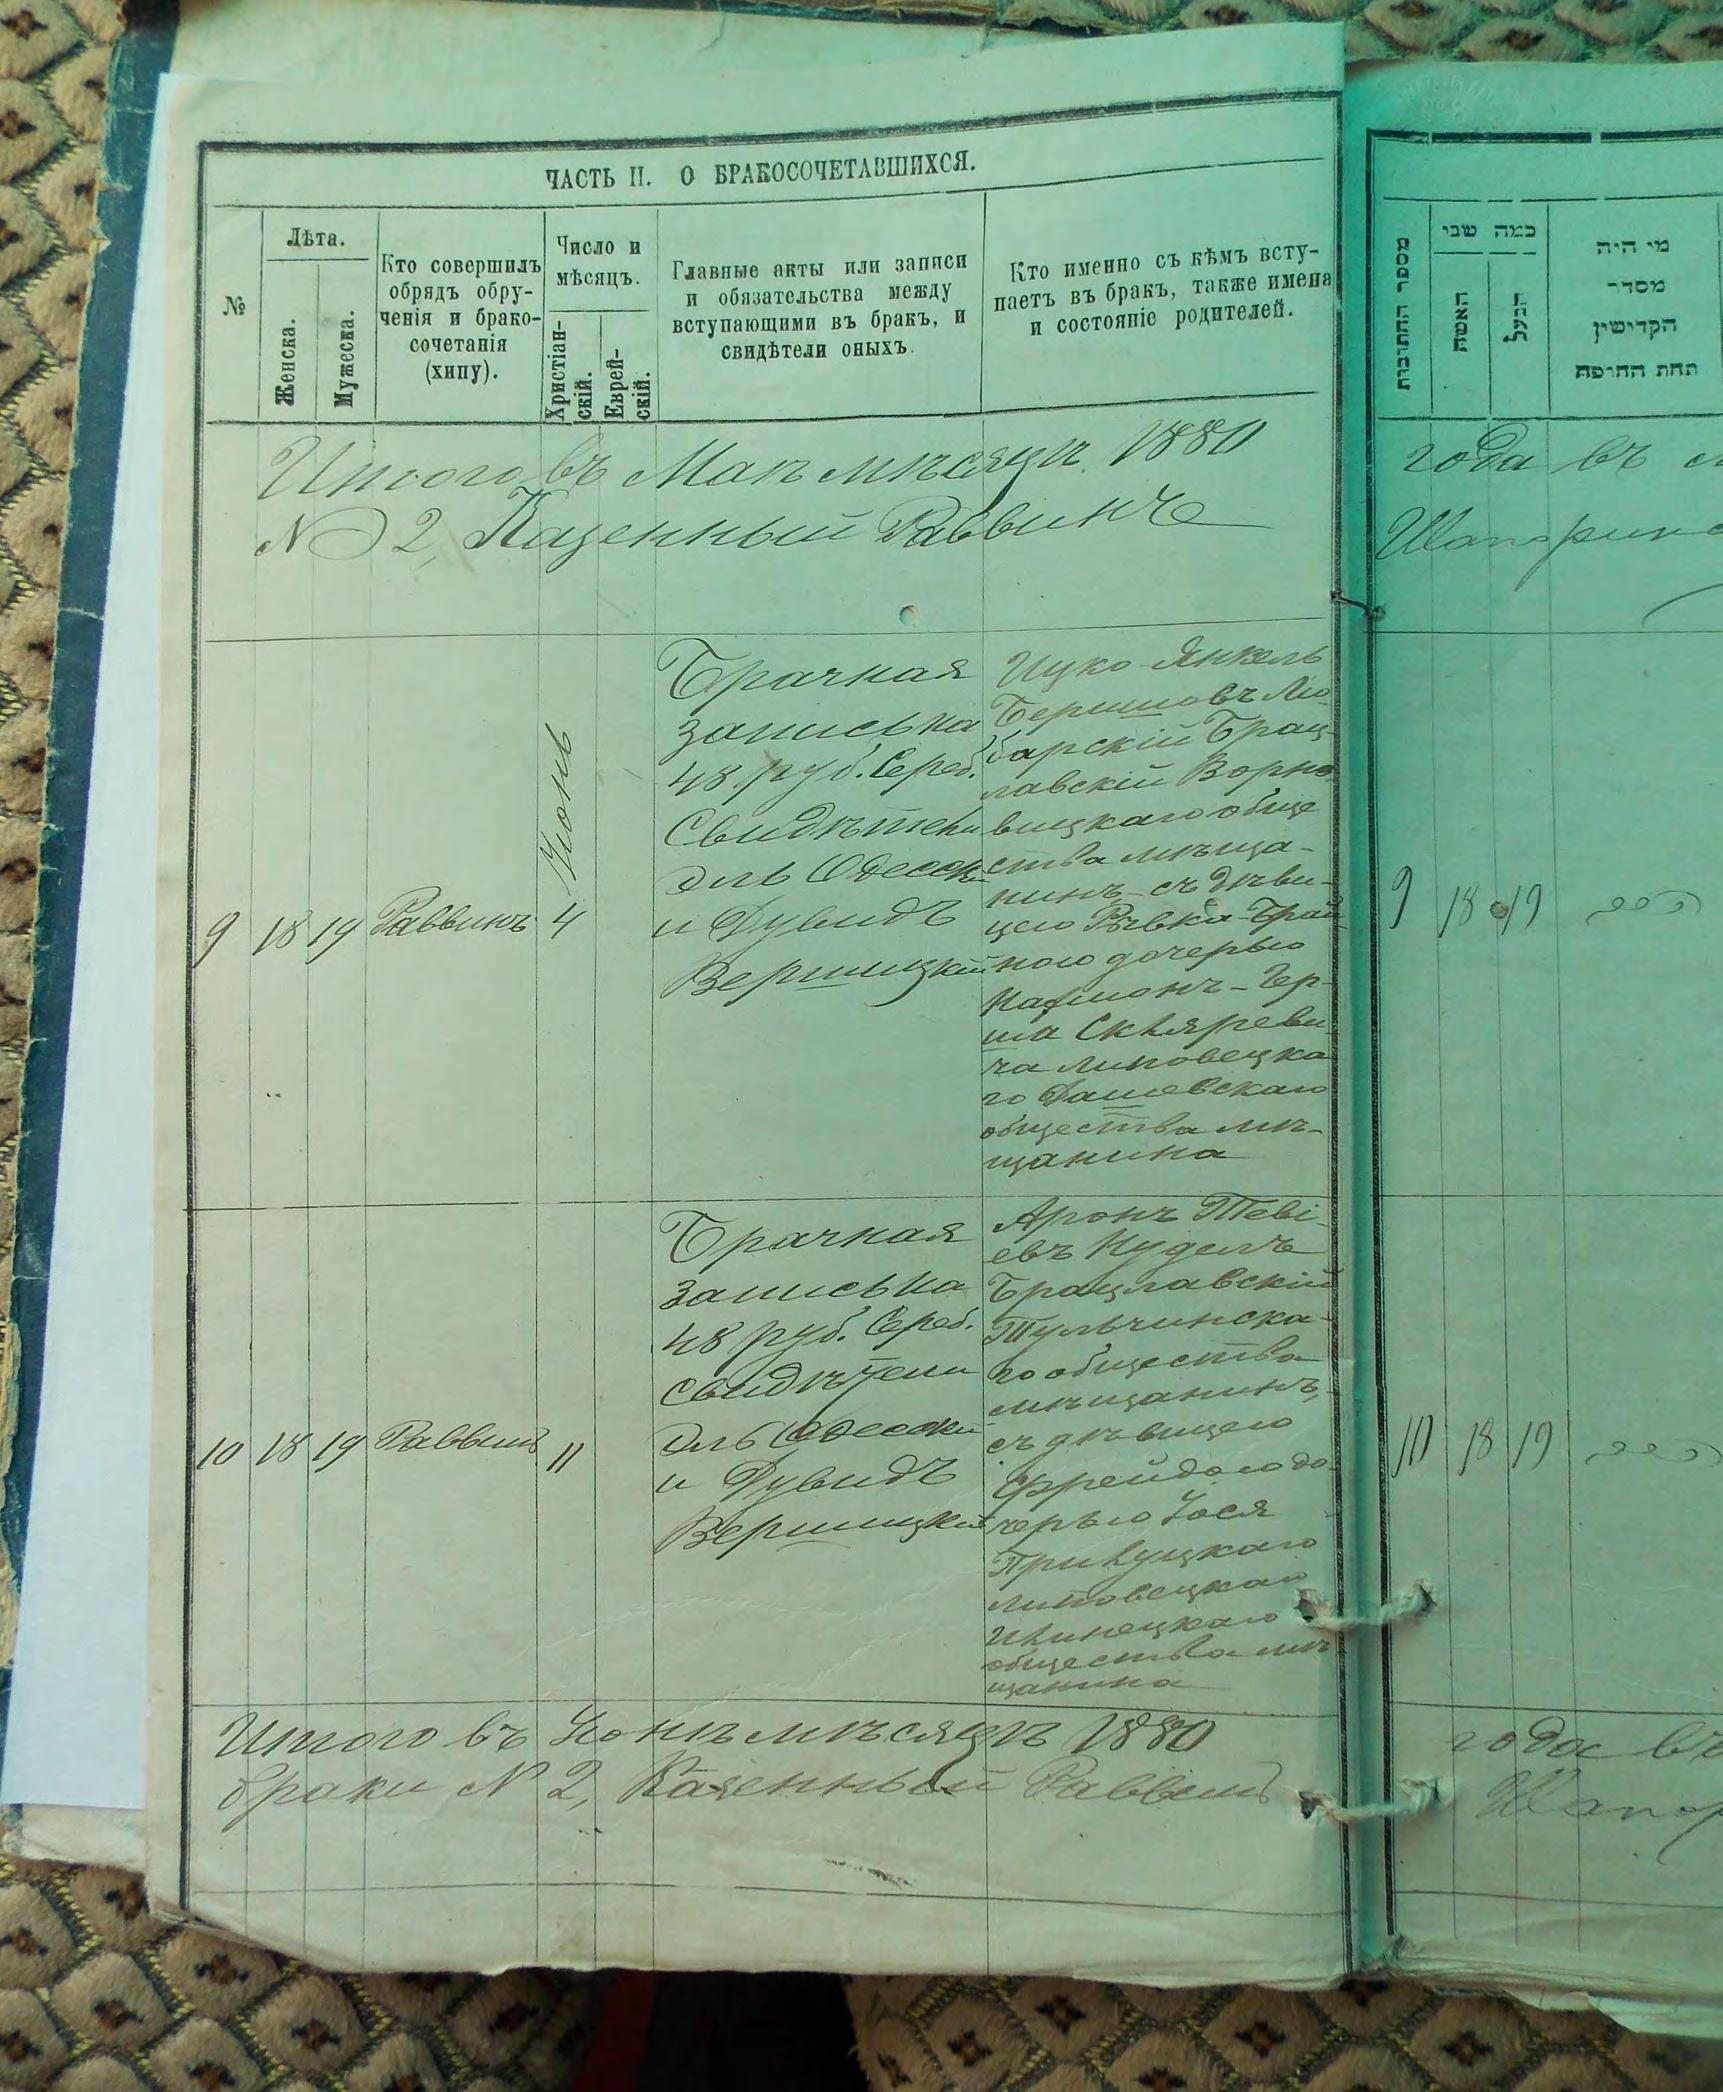 ЧАСТЬ II. О БРАКОСОЧЕТАВШИХСЯ.
№
Лѣта.
Женска.
Мужеска.
Кто совершилъ
обрядъ обру-
ченія и брако-
сочетанія
(хипу).
Число и
мѣсяцъ.
Христіан-
скій.
Еврей-
скій.
Главные акты или записи
и обязательства между
вступающими въ бракъ, и
свидѣтели оныхъ.
Кто именно съ кѣмъ всту-
паетъ въ бракъ, также имена
и состояніе родителей.
Итого въ Маѣ мѣсяцѣ 1880
№ 2, Казенный Раввинъ
Іюнь
9 18 19 Раввинъ 4
Брачная
записька
48 руб. Сереб.
Свидѣтели
Эль Одесск
и Дувидъ
Вершицкій
Ицко-Янкель
Бершовъ Лю-
барскій Брац-
лавскій Ворно
вицкаго обще
ства мѣща-
нинъ съ дѣви-
цею Рывка-Брай-
ною дочерью
Нафмонъ-Гер-
ша Скляреви
ча Липовецка
го Дашевскаго
общества мѣ-
щанина
10 18 19 Раввинъ 11
Брачная
записька
48 руб. Сереб.
Свидѣтели
Эль Одесскій
и Дувидъ
Вершицкій
Аронъ Теві-
евъ Нудель
Брацлавскій
Тульчинска-
го общества
мѣщанинъ,
съ дѣвицею
Фрейдою до-
черью Іося
Прилуцкаго
Липовецкаго
Илинецкаго
общества мѣ
щанина
Итого въ Іюнѣ мѣсяцѣ 1880
браки № 2, Казенный Раввинъ
מספר החתובות
כמה שני
האשה
הבעל
מי היה
מסדר
הקדישין
תחת החופה
года въ
9 18 19
10 18 19
года въ
Шапор